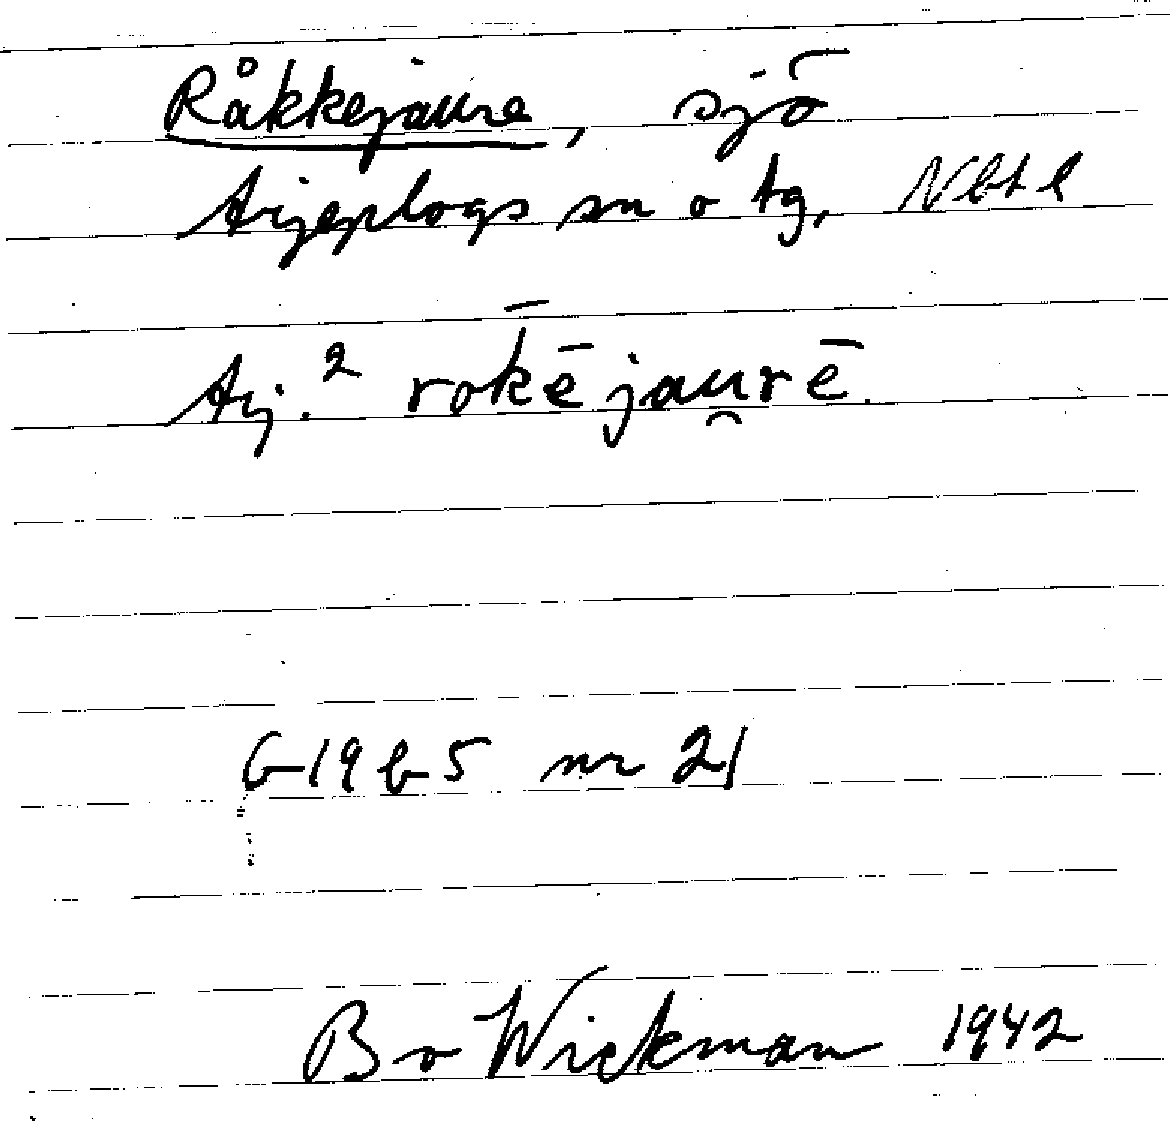 Råkkejaure, sjö
Arjeplogs sn o tg, Nbtl
Arj.² rok̄ējau̯rē.
G19b5 nr 21
Bo Wickman 1942